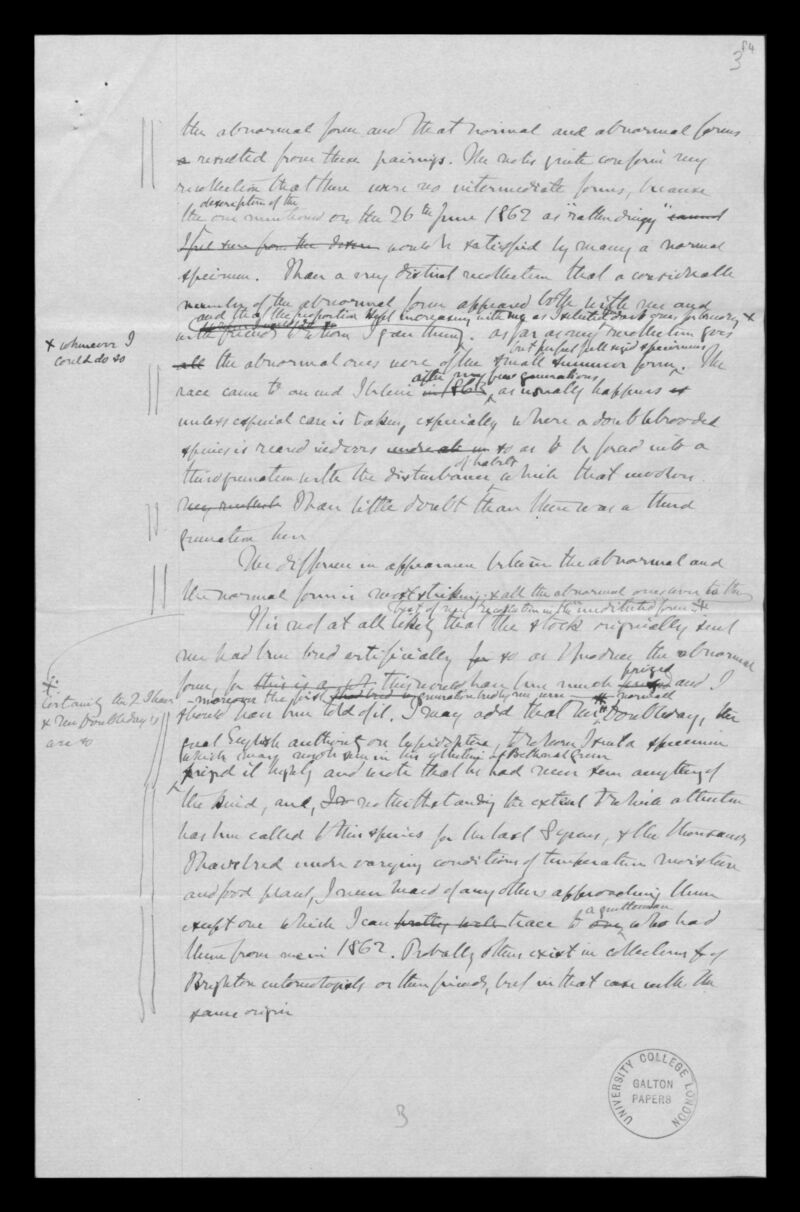 3
84
the abnormal form and that normal and abnormal forms
resulted from these pairings. The notes quite confirm my
recollection that there were no intermediate forms, because
description of the
the one mentioned on the 26th June 1862 as "rather dingy" cannot
I feel sure from the would be satisfied by many a normal
specimen. I have a very distinct recollection that a considerable
number of the abnormal form appeared both with me and
and that the proportion kept increasing with me as I selected dark ones for x
with friends to whom I gave them. as far as my recollection goes
x whenever I
could do so
but perfect full sized specimens
all the abnormal ones were of the small summer form. The
after few generations
race came to an end I believe in 1865, as usually happens
unless especial care is taken, especially where a double brooded
species is reared indoors so as to be forced into a
of habits
third generation with the disturbance which that involves.
I have little doubt that there was a third
generation here
The difference in appearance between the abnormal and
the normal form is most striking & all the abnormal ones were to the
best of my recollection
It is not at all likely that the stock originally sent
me had been bred artificially so as to produce the abnormal
prized
form, for this is a this would have been much and I
x
Certainly the 2 I have
& Mr Doubleday's
are so
moreover the first generation bred by me were normal
should have been told of it. I may add that Mr Doubleday, the
great English authority on lepidoptera, to whom I sent a specimen
which may now be seen in his collection at Bethnal Green
prized it highly and wrote that he had never seen anything of
the kind, and, notwithstanding the extent to which attention
has been called to this species for the last 8 years, & the thousands
I have bred under varying conditions of temperature moisture
and food plant, I never heard of any others approaching them
a gentleman
except one which I can pretty well trace to one who had
them from me in 1862. Probably others exist in collections of
Brighton entomologists or their friends, but in that case with the
same origin
3
UNIVERSITY COLLEGE LONDON
GALTON
PAPERS